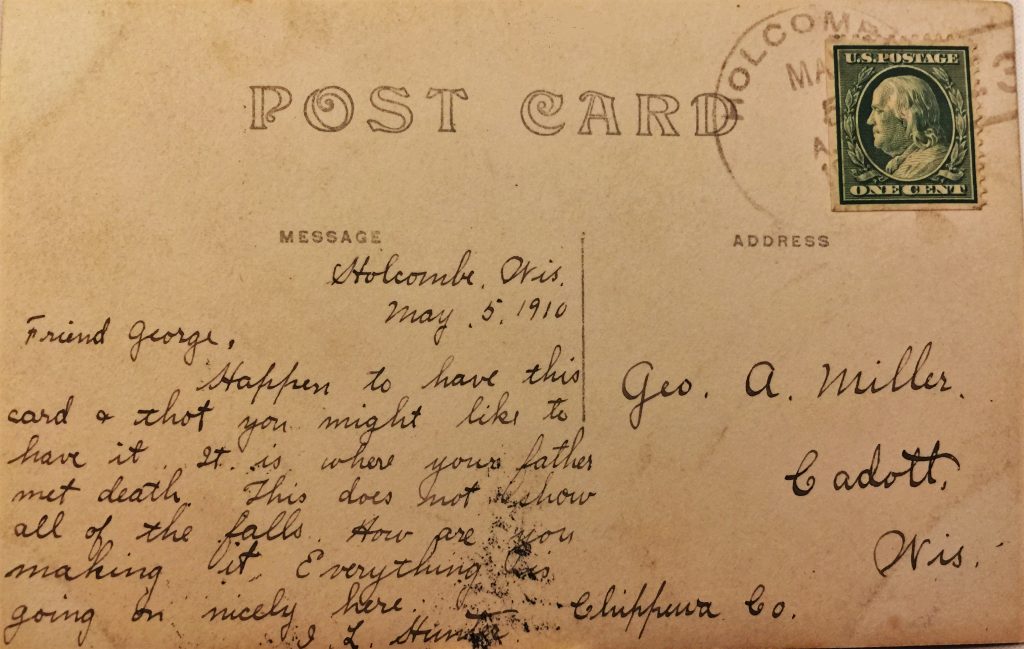 POST CARD
HOLCOMB
MA
5
A
3
U.S. POSTAGE
ONE CENT
MESSAGE
ADDRESS
Holcombe, Wis.
May, 5, 1910
Friend George,
Happen to have this
card & thot you might like to
have it. It is where your father
met death. This does not show
all of the falls. How are you
making it. Everything is
going on nicely here.
J. L. Hunter
Geo. A. Miller.
Cadott,
Wis.
Chippewa Co.